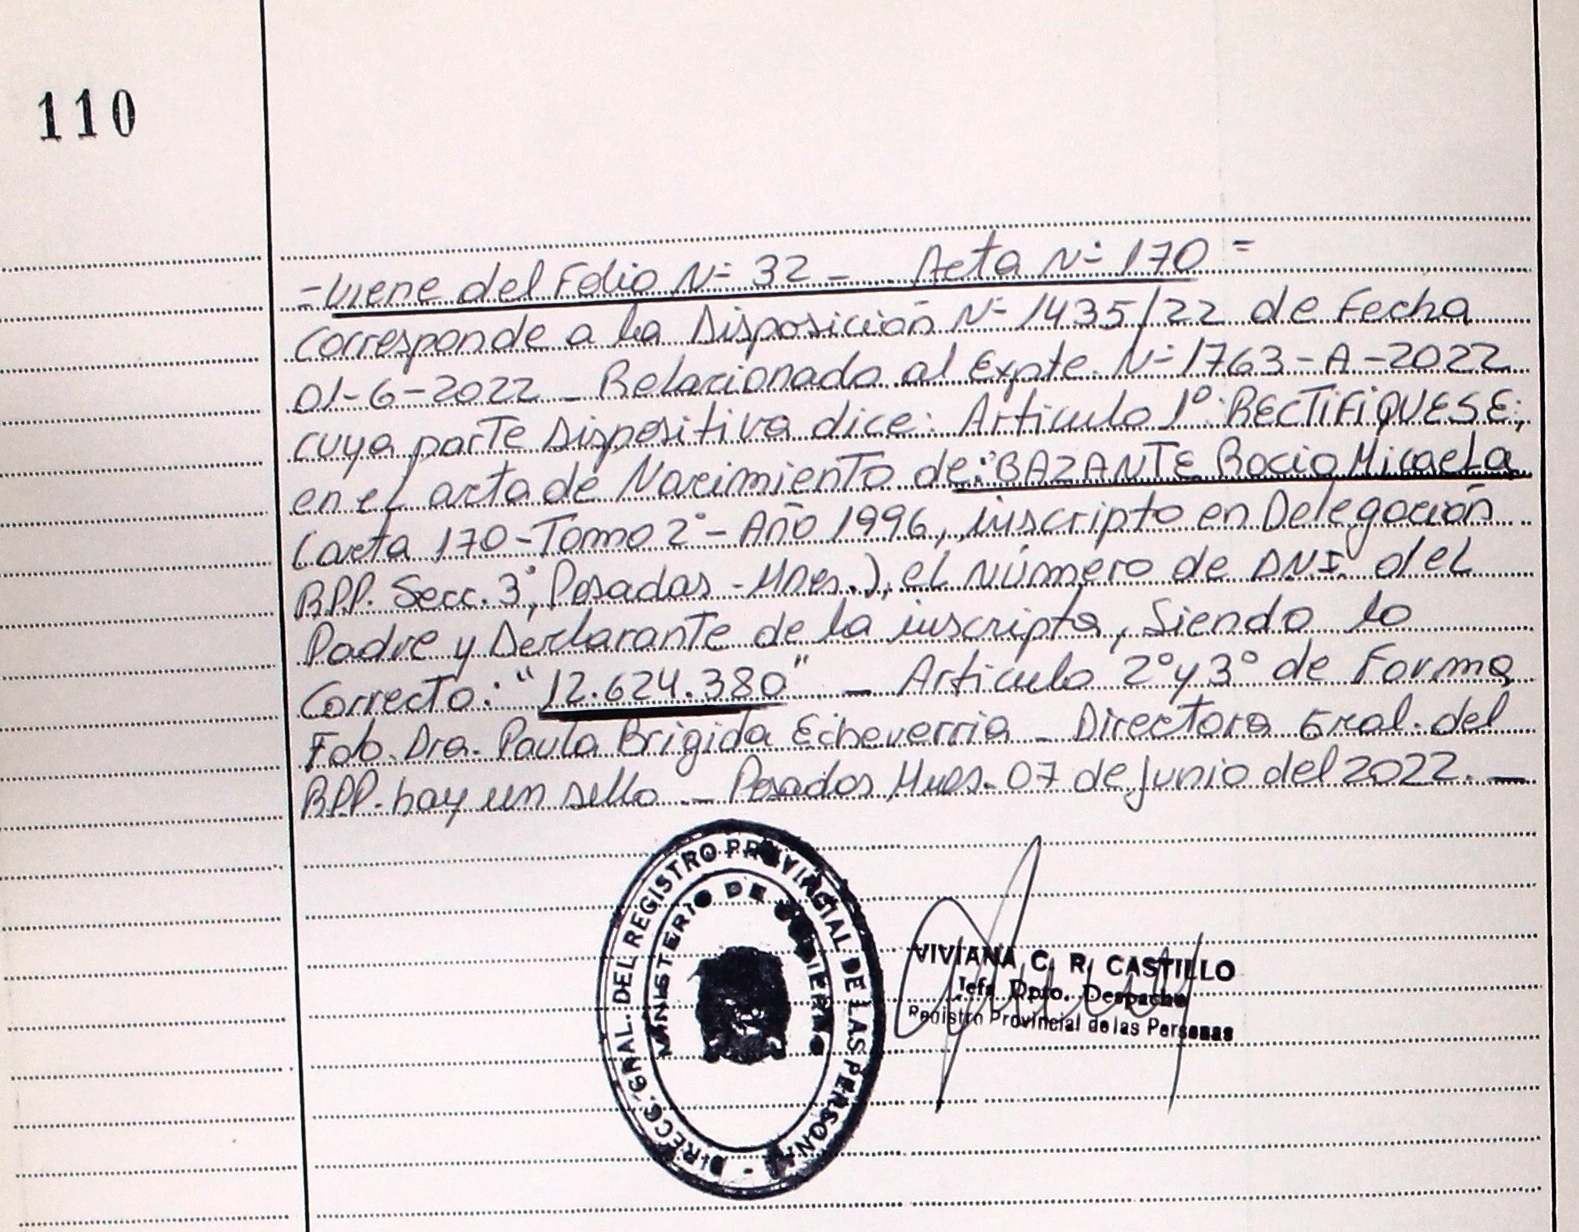 110
-Viene del Folio N- 32 - Acta N- 170 =
Corresponde a la Disposición N- 1435/22 de Fecha
01-6-2022 - Relacionado al Expte. N- 1763-A-2022
cuya parte Dispositiva dice: Articulo 1º: RECTIFIQUESE;
en el acta de Nacimiento de: "BAZANTE Rocio Micaela
(acta 170-Tomo 2°- Año 1996, inscripto en Delegación
RPP. Secc. 3°, Posadas - Mnes.), el Número de D.N.I. del
Padre y Declarante de la inscripta, Siendo lo
Correcto: "12.624.380" - Articulo 2° y 3° de Forma
Fdo. Dra. Paula Brigida Echeverria - Directora Gral. del
RPP. hay un sello - Posadas Mnes. 07 de Junio del 2022. -
DIRECC. GRAL. DEL REGISTRO PROVINCIAL DE LAS PERSONAS -
MINISTERIO DE GOBIERNO
VIVIANA C. R. CASTILLO
Jefa Dpto. Despacho
Registro Provincial de las Personas